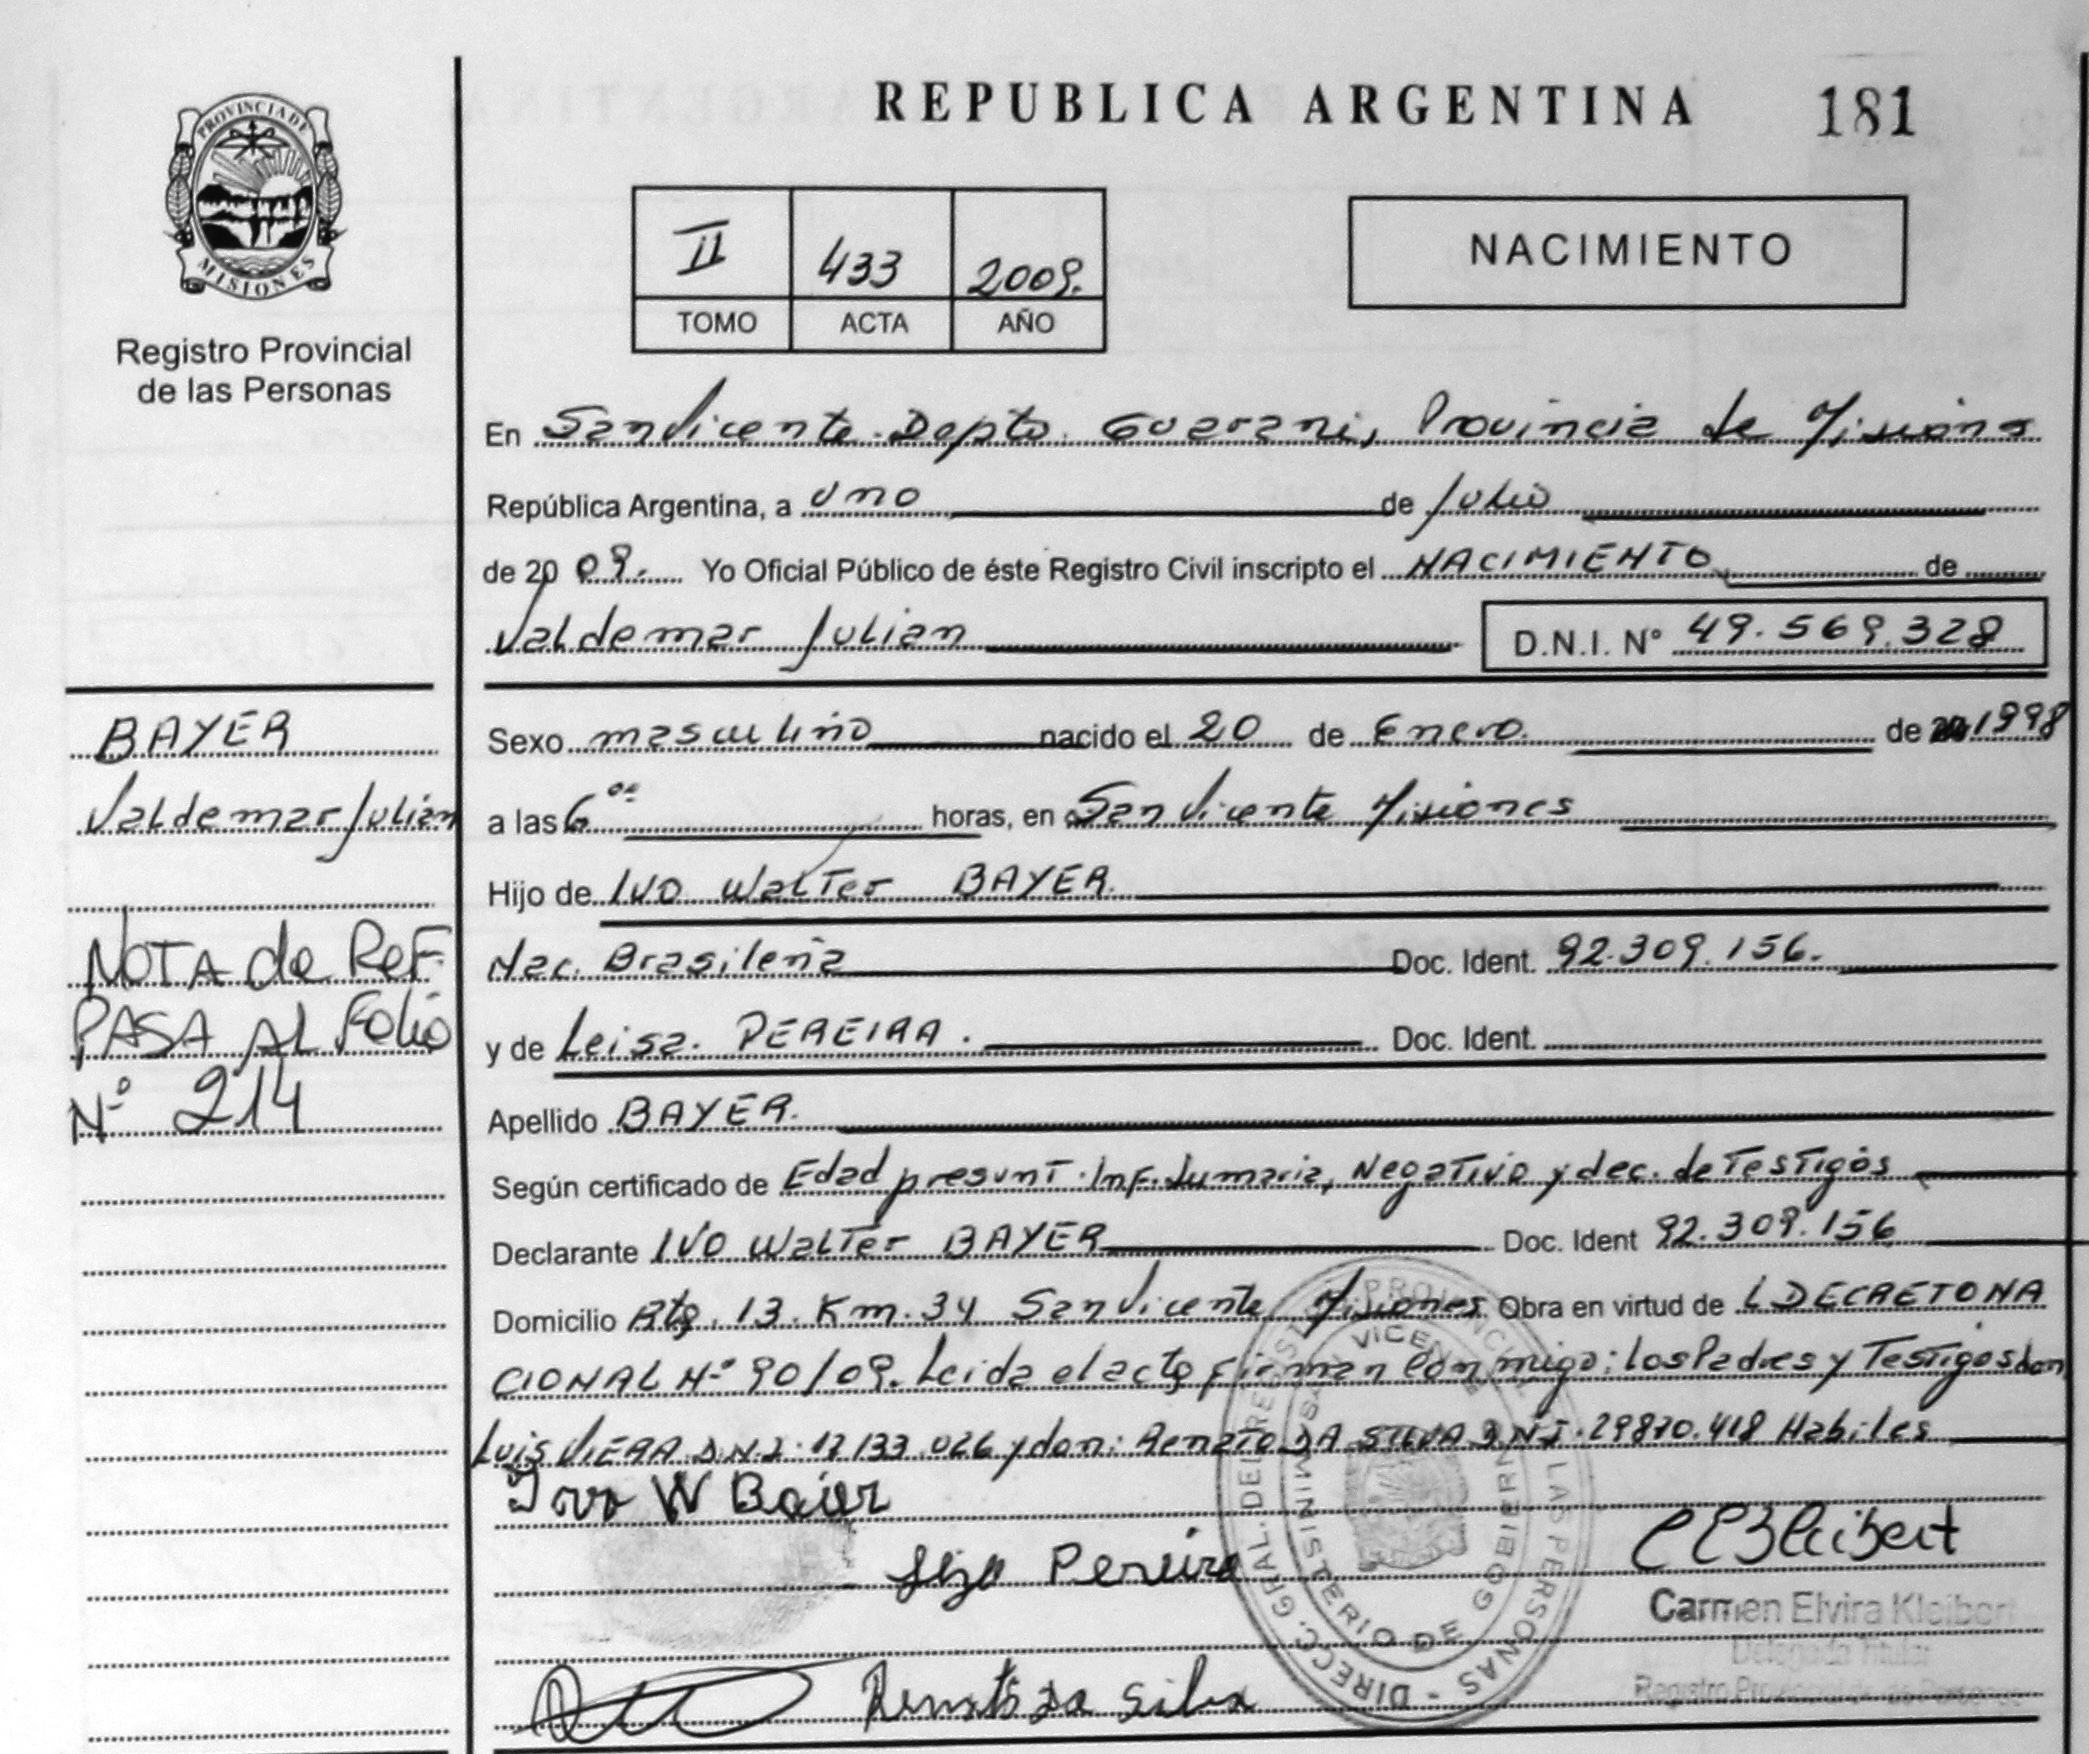 REPUBLICA ARGENTINA 181
PROVINCIA DE
MISIONES
Registro Provincial
de las Personas
II 433 2009.
TOMO ACTA AÑO
NACIMIENTO
En San Vicente Depto. Guarani, Provincia de Misiones
República Argentina, a uno de Julio
de 2009. Yo Oficial Público de éste Registro Civil inscripto el NACIMIENTO de
Valdemar Julian D.N.I. Nº 49.569.328
BAYER
Valdemar Julian
NOTA de REF.
PASA AL Folio
Nº 214
Sexo masculino nacido el 20 de Enero. de 1998
a las 6 horas, en San Vicente Misiones
Hijo de IVO Walter BAYER.
Nac. Brasileña Doc. Ident. 92.309.156.
y de Leisa. PEREIRA. Doc. Ident.
Apellido BAYER.
Según certificado de Edad presunt. Inf. Sumaria, Negativo y dec. de Testigos
Declarante IVO Walter BAYER Doc. Ident 92.309.156
Domicilio Rta. 13. Km. 34 San Vicente Misiones. Obra en virtud de L DECRETO NA
CIONAL Nº 90/09. Leida el acta firman conmigo: los Padres y Testigos don
Luis VIERA D.N.I. 17133.026 y don: Renato DA SILVA D.N.I. 29870.418 Habiles
Ivo W Baier
Pereira
Carmen Elvira Kleibert
Delegada Titular
Registro Provincial de las Personas
da Silva
DIRECC. GRAL. DEL REGISTRO PROVINCIAL DE LAS PERSONAS
MINISTERIO DE GOBIERNO
SAN VICENTE